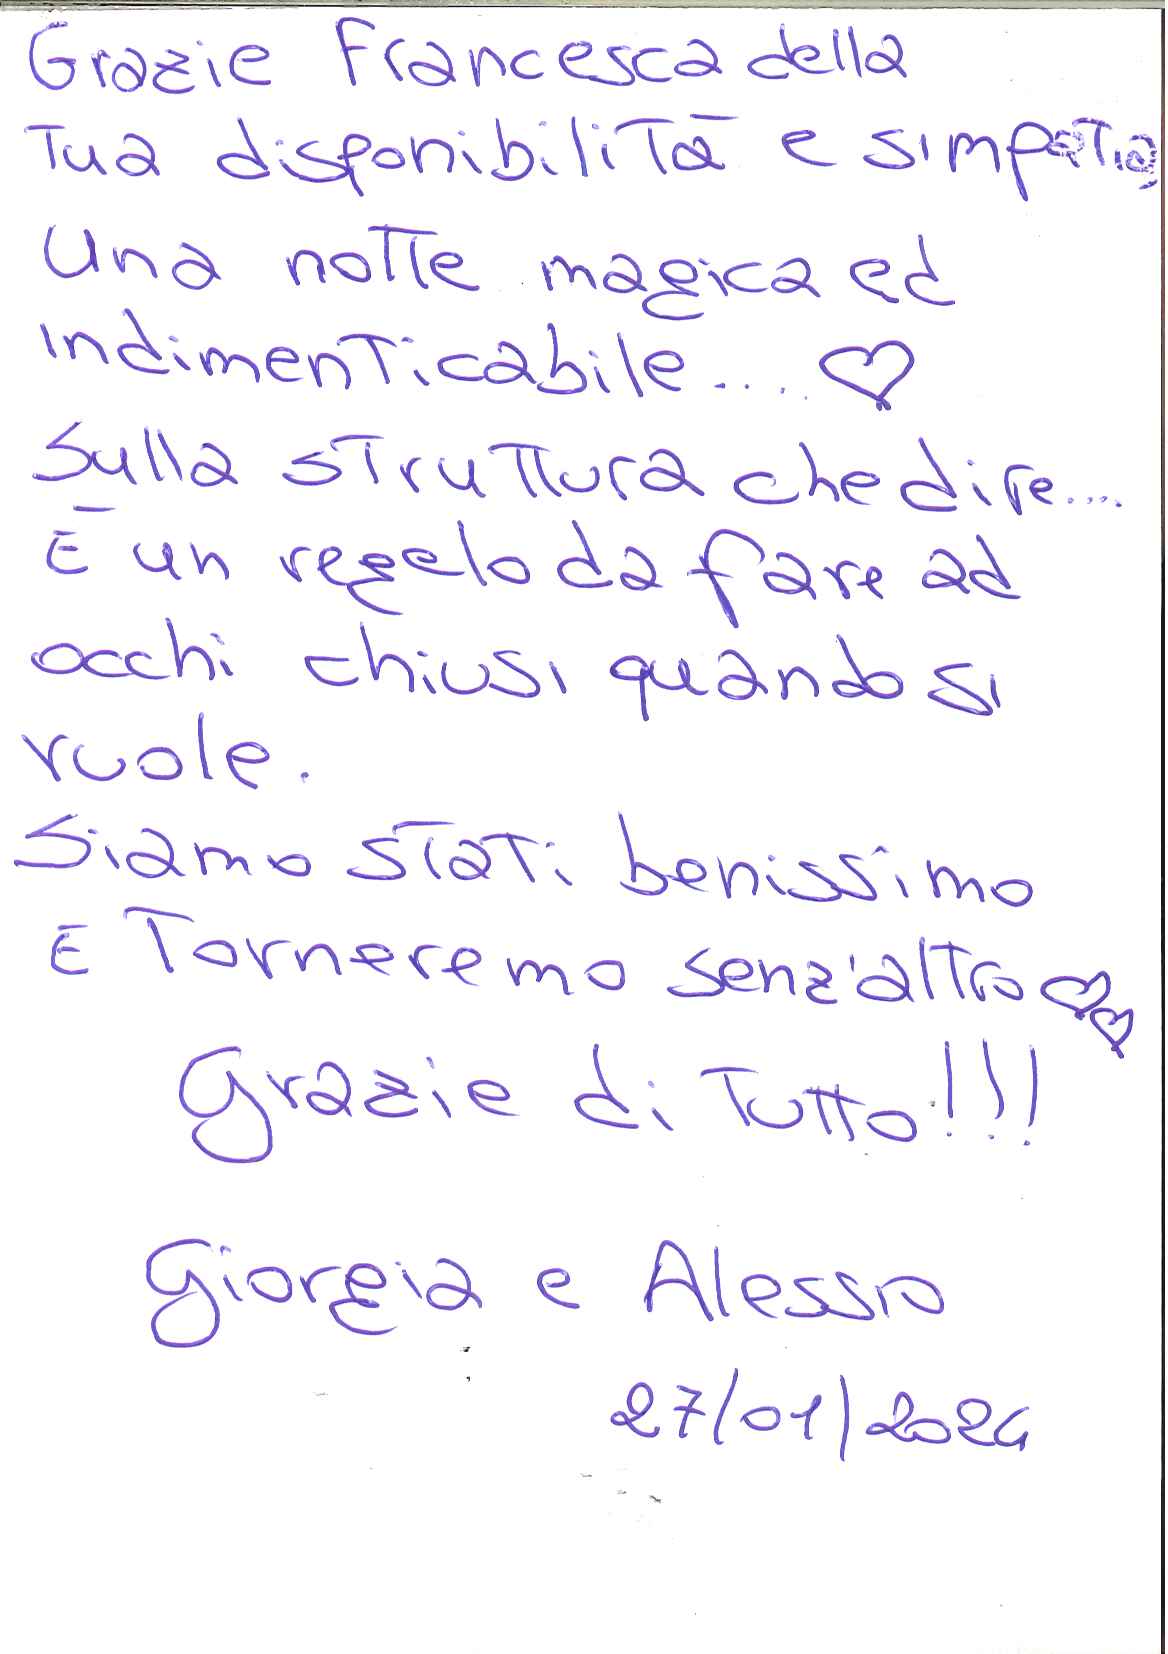 Grazie Francesca della
Tua disponibilità e simpatia,
Una notte magica ed
indimenticabile.... ♡
Sulla struttura che dire....
È un regalo da fare ad
occhi chiusi quando si
vuole.
Siamo stati benissimo
E Torneremo senz'altro ♡♡
Grazie di Tutto!!!
Giorgia e Alessio
27/01/2024